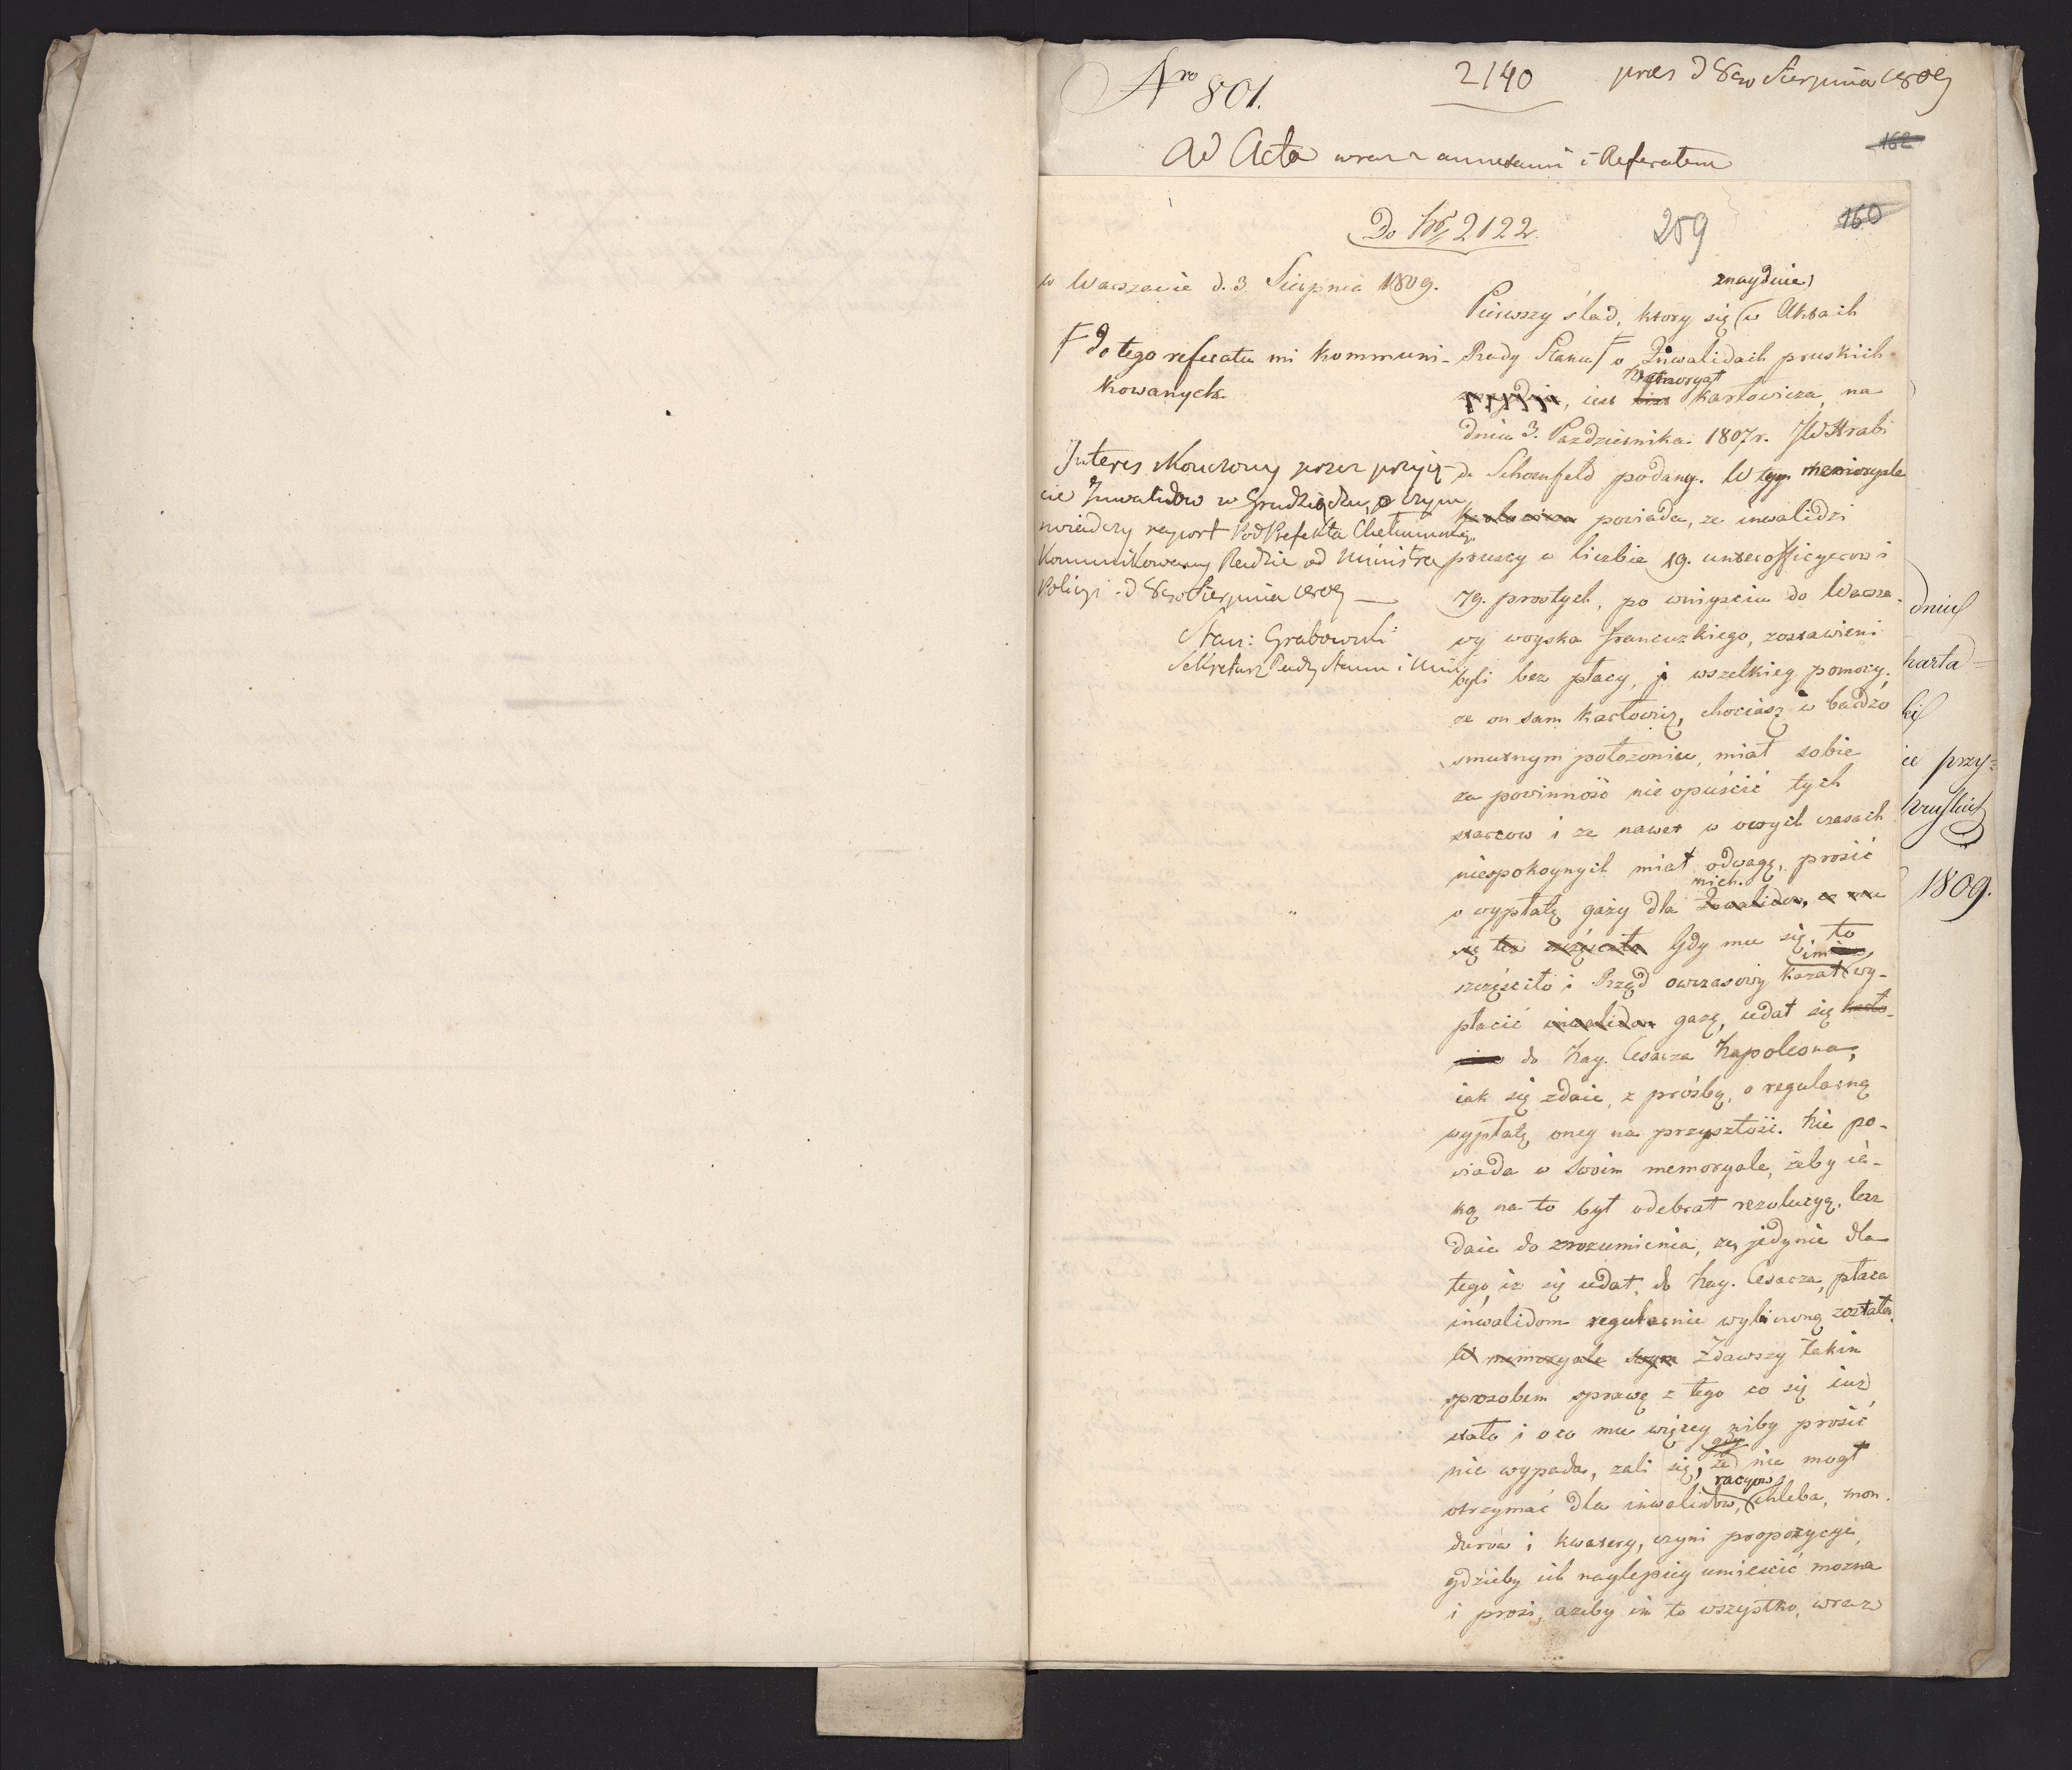 Nro 801.
2140
præs d 8go Sierpnia 1809
162
Ad Acta wraz z annexami i Referatem
Do Nr 2122.
259
160
w Warszawie d. 3 Sierpnia 1809.
F do tego referatu mi kommuni-
kowanych
Interes skonczony przez przyię-
cie Inwalidow w Grudziądzu, o czym
swiadczy raport PodPrefekta Chełmińskiego
Kommunikowany Radzie od Ministra
Policyi d 8go Sierpnia 1809 —
Stan: Grabowski
Sekretarz Rady Stanu i Min
znayduie
Pierwszy ślad, ktory się w Aktach
Rady Stanu F o Inwalidach pruskich
Memoryał
, iest Karłowicza, na
dniu 3. Października 1807 r. JW Hrabi
de Schoenfeld podany. W tym memoryale
Karłowicz powiada, ze inwalidzi
pruscy w liczbie 19. unterofficyerow i
79. prostych, po weyściu do Warsza-
wy woyska francuzkiego, zostawieni
byli bez płacy, i wszelkiey pomocy,
ze on sam Karłowicz, chociasz w bardzo
smutnym położeniu, miał sobie
za powinność nie opuścić tych
starcow i ze nawet w owych czasach
niespokoynych miał odwagę, prosić
nich.
o wypłatę gaży dla Inwalidow, co mu
się też szczęściło Gdy mu się to
im
szczęściło i Rząd owczasowy kazał wy-
płacić inwalidom gażę, udał się Karło-
wicz do Nay. Cesarza Napoleona,
iak się zdaie, z prośbą, o regularną
wypłatę oney na przyszłość. Nie po-
wiada w swoim memoryale, żeby ia-
ką na to był odebrał rezolucyą, lecz
daie do zrozumienia, że jedynie dla
tego, iz się udał do Nay. Cesarza, płaca
inwalidom regularnie wyliczoną została.
W memoryale swym Zdawszy takim
sposobem sprawę z tego co się iuż
stało i o co mu więcey niby prosić
gdy
nie wypada, żali się, że nie mogł
racyow
otrzymać dla inwalidow, chleba, mon-
durow i kwatery, czyni propozycye,
gdzieby ich naylepiey umieścić można
i prosi, azeby im to wszystko, wraz
dniu
harta=
kis
ie przy=
Pruskich
1809.